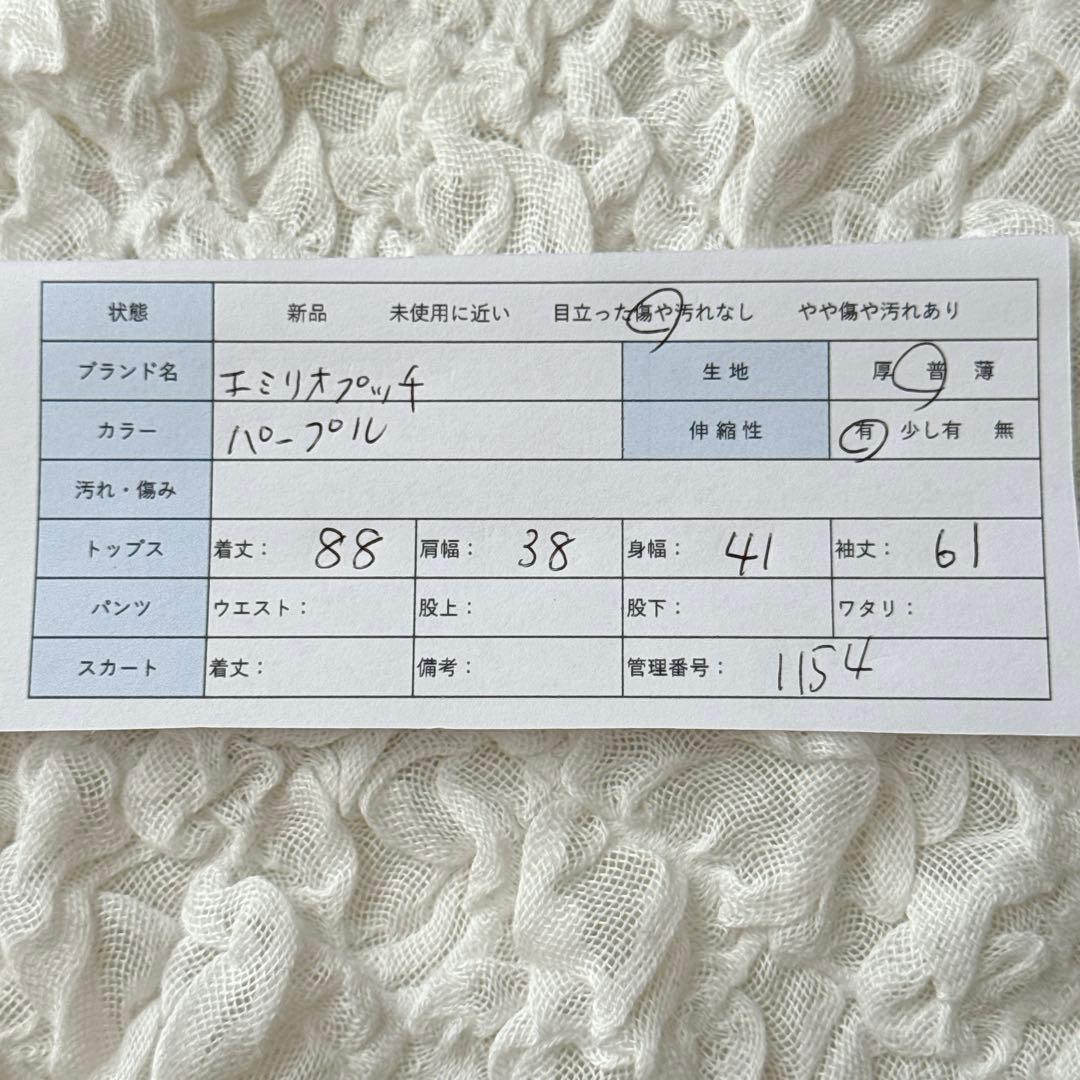 状態 新品 未使用に近い 目立った傷や汚れなし やや傷や汚れあり
ブランド名 エミリオプッチ 生地 厚 普 薄
カラー パープル 伸縮性 有 少し有 無
汚れ・傷み
トップス 着丈： 88 肩幅： 38 身幅： 41 袖丈： 61
パンツ ウエスト： 股上： 股下： ワタリ：
スカート 着丈： 備考： 管理番号： 1154